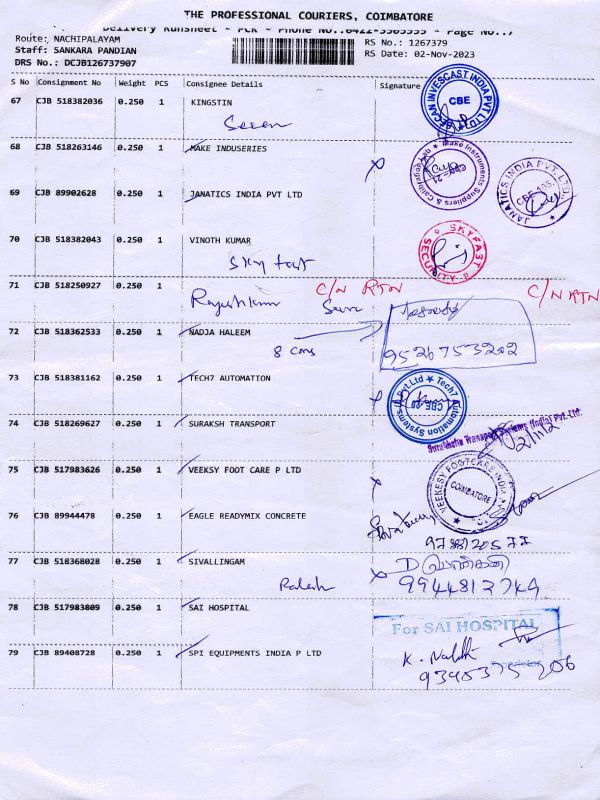 THE PROFESSIONAL COURIERS, COIMBATORE
Delivery Runsheet - PCR - Phone No.:0422-3503555 - Page No.:7
Route: NACHIPALAYAM
Staff: SANKARA PANDIAN
DRS No.: DCJB126737907
RS No.: 1267379
RS Date: 02-Nov-2023
S No Consignment No Weight PCS Consignee Details Signature
67 CJB 518382036 0.250 1 KINGSTIN
Seven
SECAN INVESCAST INDIA PVT LTD
CBE
68 CJB 518263146 0.250 1 MAKE INDUSERIES
Make Instruments Suppliers & Calibration Lab
CBE-21
69 CJB 89902628 0.250 1 JANATICS INDIA PVT LTD
JANATICS INDIA PVT. LTD.
70 CJB 518382043 0.250 1 VINOTH KUMAR
Sky fast
SKYFAST SECURITY
71 CJB 518250927 0.250 1
C/N RTN
C/N RTN
72 CJB 518362533 0.250 1 NADJA HALEEM
9526753202
73 CJB 518381162 0.250 1 TECH7 AUTOMATION
Tech7 Automation Systems Pvt.Ltd
74 CJB 518269627 0.250 1 SURAKSH TRANSPORT
75 CJB 517983626 0.250 1 VEEKSY FOOT CARE P LTD
VEEKESY FOOTCARE INDIA
COIMBATORE
76 CJB 89944478 0.250 1 EAGLE READYMIX CONCRETE
77 CJB 518368028 0.250 1 SIVALLINGAM
9944812749
78 CJB 517983809 0.250 1 SAI HOSPITAL
For SAI HOSPITAL
79 CJB 89408728 0.250 1 SPI EQUIPMENTS INDIA P LTD